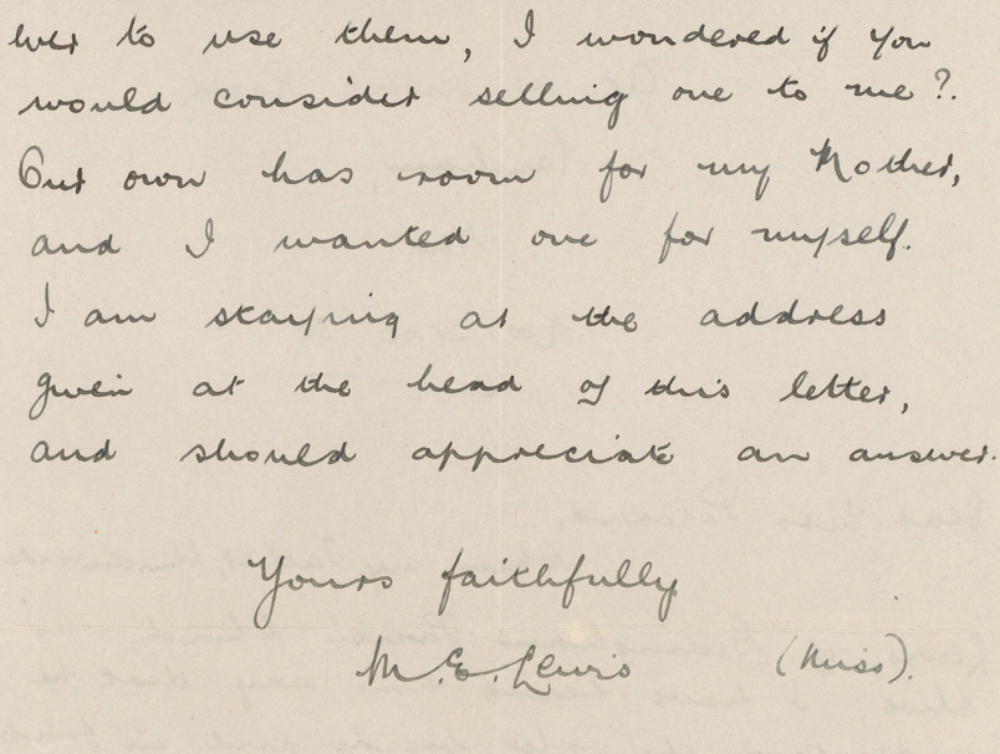 ever to use them, I wondered if you
would consider selling one to me?.
Our own has room for my Mother,
and I wanted one for myself.
I am staying at the address
given at the head of this letter,
and should appreciate an answer.
Yours faithfully
M. E. Lewis (Miss).